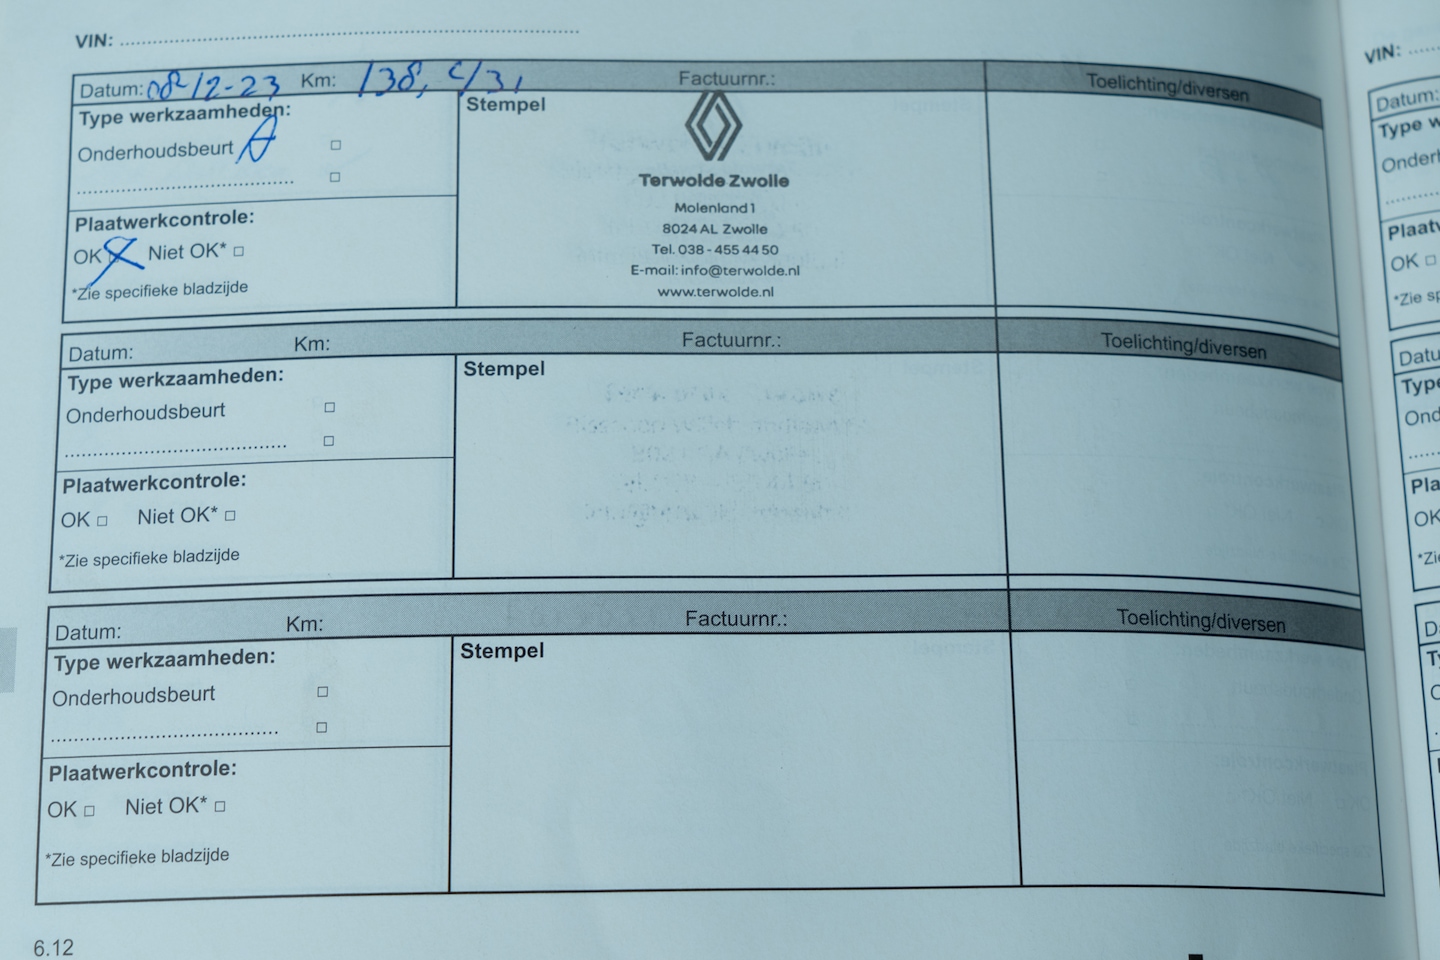 VIN: ........................................
Datum: 08-12-23 Km: 138, Factuurnr.: Toelichting/diversen
Type werkzaamheden:
Onderhoudsbeurt A □
........................................ □
Plaatwerkcontrole:
OK Niet OK* □
*Zie specifieke bladzijde
Stempel
Terwolde Zwolle
Molenland 1
8024 AL Zwolle
Tel. 038 - 455 44 50
E-mail: info@terwolde.nl
www.terwolde.nl
Datum: Km: Factuurnr.: Toelichting/diversen
Type werkzaamheden:
Onderhoudsbeurt □
........................................ □
Plaatwerkcontrole:
OK □ Niet OK* □
*Zie specifieke bladzijde
Stempel
Datum: Km: Factuurnr.: Toelichting/diversen
Type werkzaamheden:
Onderhoudsbeurt □
........................................ □
Plaatwerkcontrole:
OK □ Niet OK* □
*Zie specifieke bladzijde
Stempel
6.12
VIN: ......
Datum:
Type w
Onderh
Plaatw
OK □
*Zie sp
Datu
Type
Ond
Pla
OK
*Zi
D